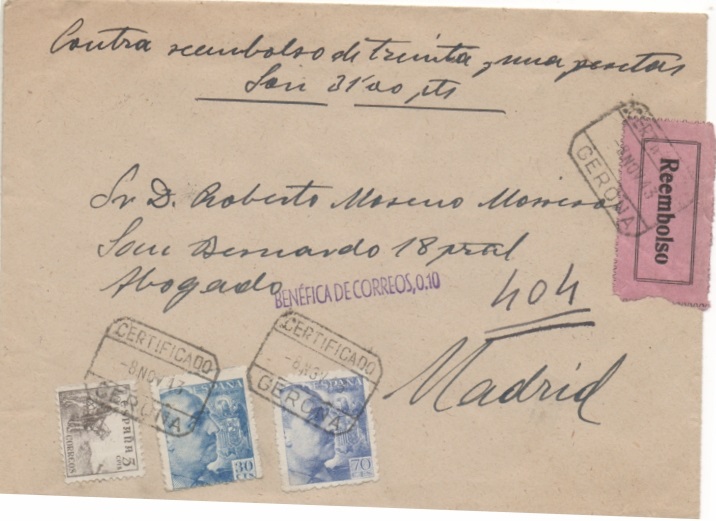 Contra reembolso de treinta y una pesetas
Son 31'00 pts
Reembolso
CERTIFICADO
-8 NOV 43
GERONA
Sr D. Roberto Moreno
San Bernardo 18 pral
Abogado
BENÉFICA DE CORREOS, 0.10
404
Madrid
CERTIFICADO
-8 NOV 43
GERONA
CERTIFICADO
GERONA
CORREOS
5
CTS
ESPAÑA
30
CTS
ESPAÑA
70
CTS